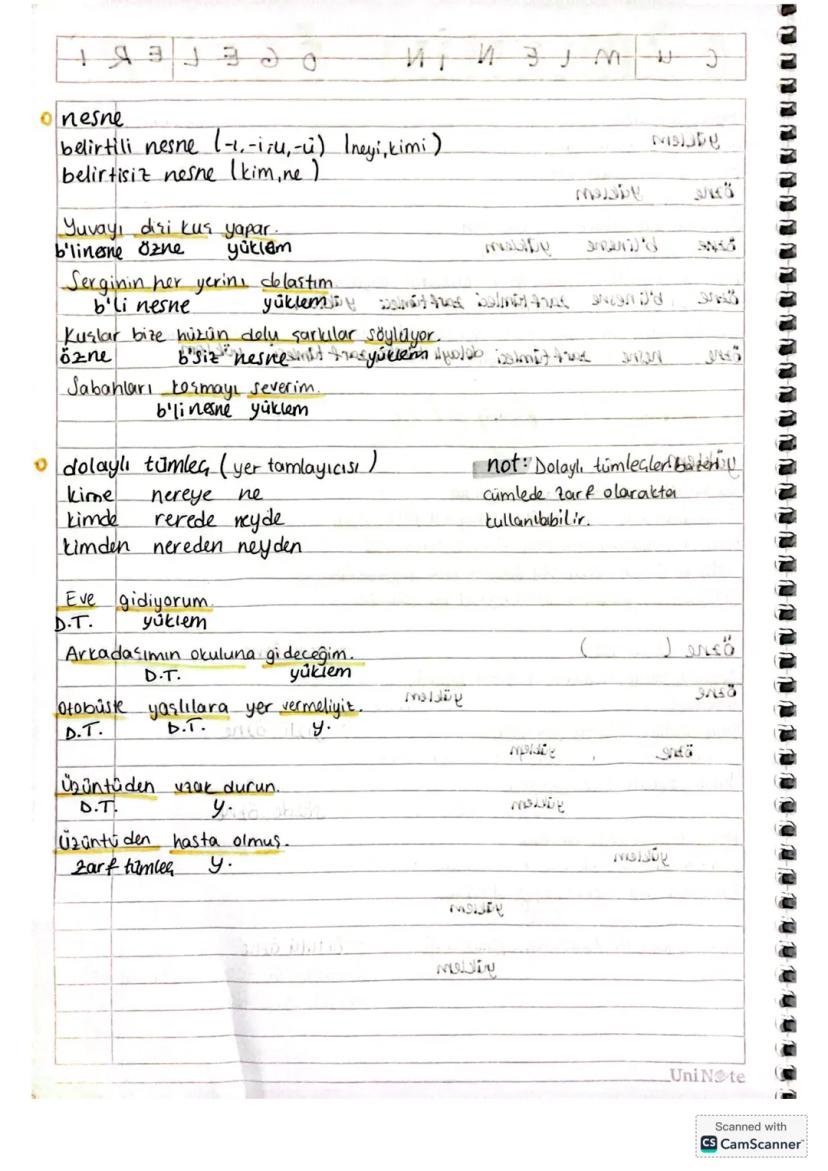 nesne
belirtili nesne (-ı,-i,-u,-ü) (neyi,kimi)
belirtisiz nesne (kim,ne)
Yuvayı dişi kuş yapar.
b'linesne özne yüklem
Serginin her yerini dolaştım
b'li nesne yüklem
Kuşlar bize hüzün dolu şarkılar söylüyor.
özne b'siz nesne yüklem
Sabahları koşmayı severim.
b'li nesne yüklem
dolaylı tümleç (yer tamlayıcısı)
kime nereye ne
kimde nerede neyde
kimden nereden neyden
not: Dolaylı tümleçler bazen
cümlede zarf olarakta
kullanılabilir.
Eve gidiyorum.
D.T. yüklem
Arkadaşımın okuluna gideceğim.
D.T. yüklem
Otobüste yaşlılara yer vermeliyiz.
D.T. D.T. y.
Üzüntüden uzak durun.
D.T. y.
Üzüntüden hasta olmuş.
zarf tümleç y.
UniNote
Scanned with
CS CamScanner